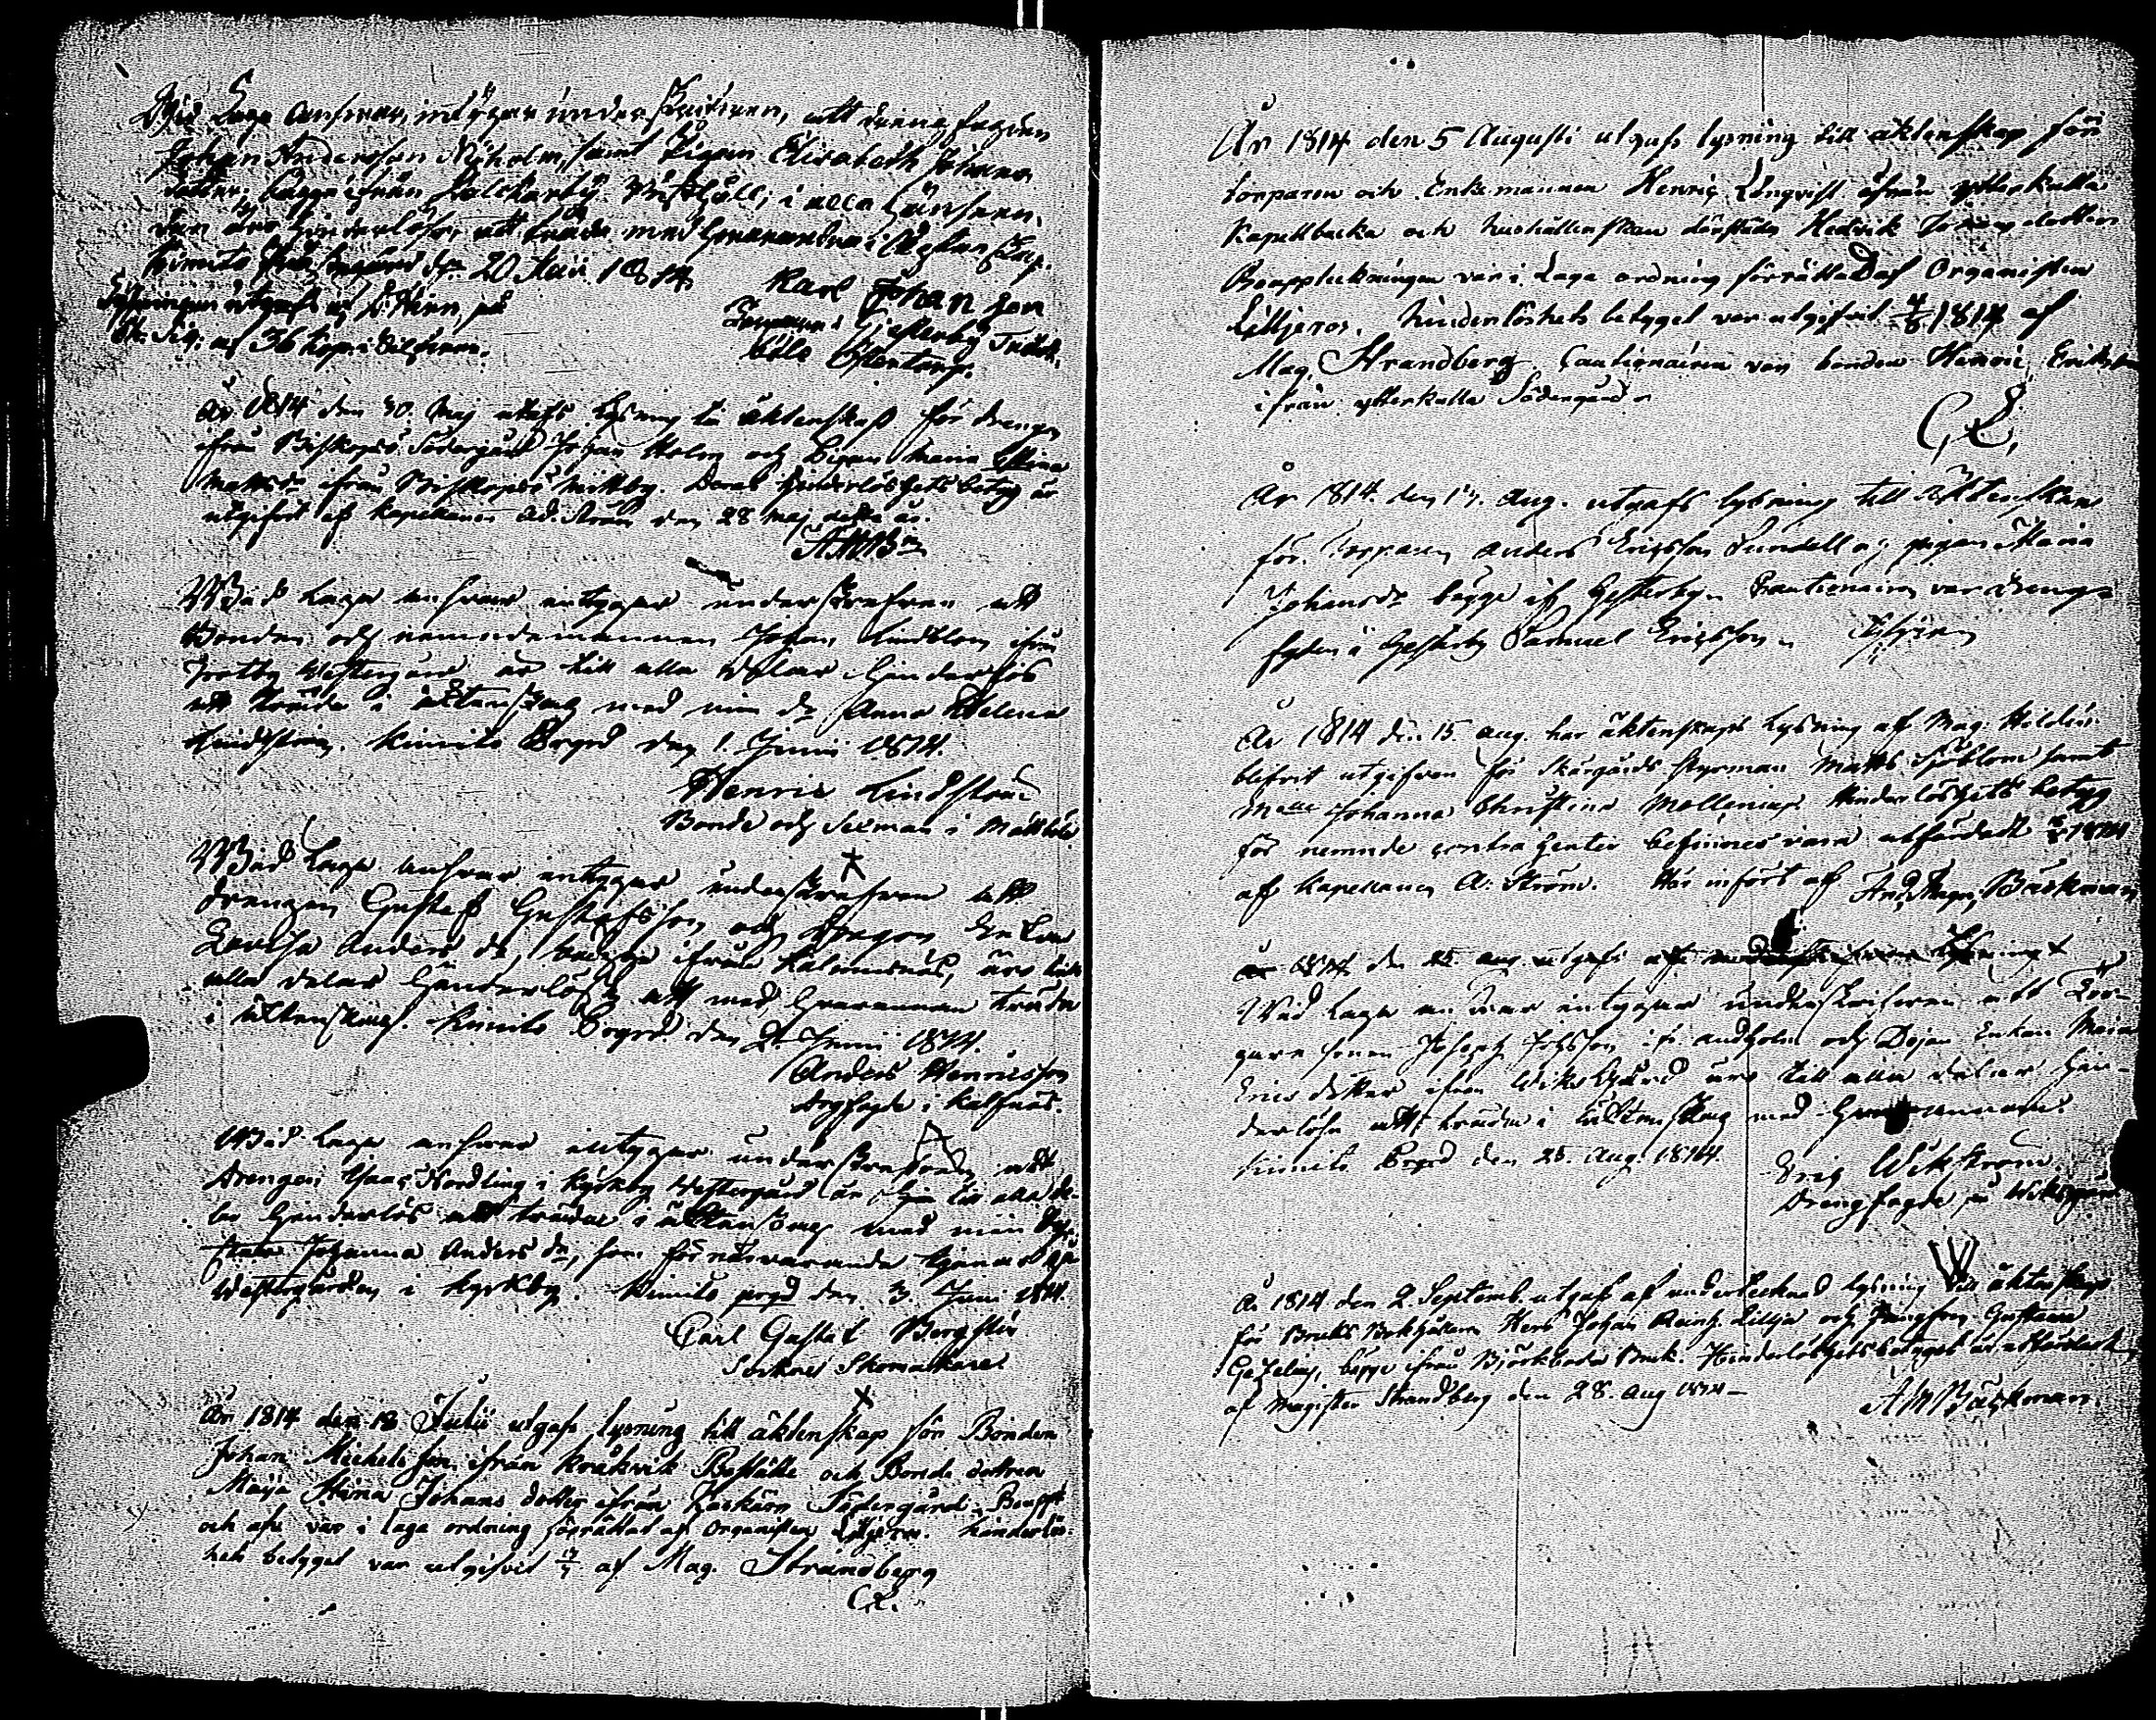 Wid Laga answar, intygar underskrifven, att drengfogden
Johan Andersson Nyholm, samt Pigan Elisabeth Johans
dotter, bägge ifrån Wästkjall; i alla hänseen-
den äro hinderlöse, att träda med hvarannan i Ächtenskap.
Kimito Prästegård d. 20 Maii 1814
Karl Johan son
Gesterby
Lysningen utgafs af
af 36 kop.
År 1814 den 30. Maj utgafs Lysning till äktenskap för drengen
ifrån Biskopsö Södergård Johan Holm och Pigan Maria Stina
Mattsdr ifrån Biskopsö Mittby. Deras hinderlöshets betyg är
utgifvit af Kapellanen Ad. Ström den 28 Maj detta år.
AMBn
Wid Laga answar intygar underskrefven att
Bonden och nemndemannen Johan Lindblom ifrån
Westergård är till alla delar hinderlös
att träda i äktenskap med min dr Anna Helena
Lindström. Kimito Prgrd den 1. Junii 1814.
Henric Lindström
Bonde och Sexman i Mattböle
Wid Laga answar intygar underskrefven att
drengen Gustaf Gustafsson och Pigan
Lovisa Anders dr, bägge ifrån Kalfnäs, äro till
alla delar hinderlöse att med hvarannan träda
i äktenskap. Kimito Prgrd. den 2. Junii 1814.
Anders Henricsson
i Kalfnäs.
Wid Laga answar intygar underskrefven att
drengen Isaac Nordling i Kyrkoby Westergård är till alla de-
lar hinderlös att träda i äktenskap med min
Johanna Anders dr, som för närvarande tjenar på
Westergården i Kyrkoby. Kimito prgd den 3. Juni 1814.
Carl Gustaf Bergsten
Sockne Skomakare
År 1814 den 18 Julii utgafs lysning till äktenskap för Bonden
Johan Michelsson ifrån Kråkvik Boställe och Bonde dottren
Maija Stina Johans dotter ifrån Södergård. Beuppt
och afv var i laga ordning förrättat af Organisten Liljeros. hinderlös-
hets betyget var utgifvit 17/7 af Mag. Strandberg
C.L.
År 1814 den 5 Augusti utgafs lysning till äktenskap för
torparen och Enkemannen Henric Lönqvist ifrån ytterkulla
Kapellbacka och hushållerskan därstädes Hedvik Johans dotter
Beuppteckningen var i Laga ordning förrättad af Organisten
Liljeros. hinderlöshets betyget var utgifvit 4/8 1814 af
Mag. Strandberg Cautionairen var bonden Henric Eriksson
ifrån ytterkulla Södergård.
C.L.
År 1814. den 17. Aug. utgafs lysning till äktenskap
för Torparen Anders Ericsson Sundell och pigan Maria
Johansdr bägge if Gesterby. Cautionairen var dreng-
fogden i Gesterby Samuel Ericsson.
År 1814 den 15 aug. har äktenskaps Lysning af Mag. Hildén
blifvit utgifven för Skärgårds Styrman Matts Sjöblom samt
Mlle Johanna Christina Mollenius. Hinderlöshets betyg
för nemnde contrahenter befinnes vara utfärdadt 1814
af Kapellanen A. Ström. Här infört af And. Magn. Bäckman
År 1814 den 25 aug. utgafs
Wid Laga answar intygar underskrifven att Bor-
gare sonen Joseph Johsson if. Sandholm och Pigan Enkan Maria
Erics dotter ifrån Wiksgård äro till alla delar hin-
derlöse att träda i äktenskap med hvarannan.
Kimito Prgrd den 25. aug. 1814.
Eric Wikström
drengfogde på Wiksgård
År 1814 den 2. Septemb. utgafs af undertecknad lysning till äktenskap
för Bruks Bokhållaren Herr Johan Reinh. Lillja och Jungfrun Gustava
Gezelius, bägge ifrån Björkboda Bruk. Hinderlöshetsbetyget är utfärdadt
af Magister Strandberg den 28. Aug 1814 —
AMBäckman.